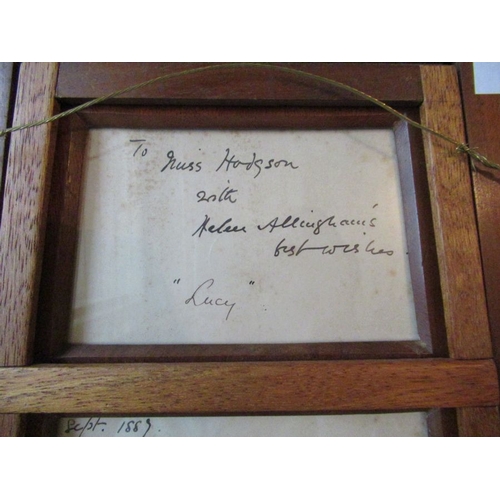 To Miss Hodgson
with
Helen Allingham's
best wishes.
"Lucy"
Sept. 1889.